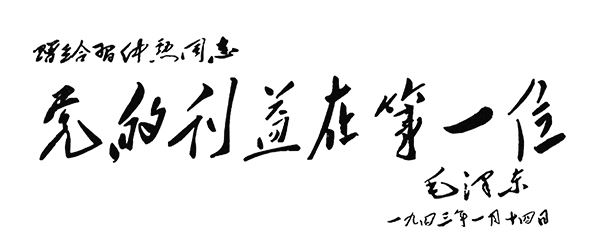 赠给习仲勋同志
党的利益在第一位
毛泽东
一九四三年一月十四日